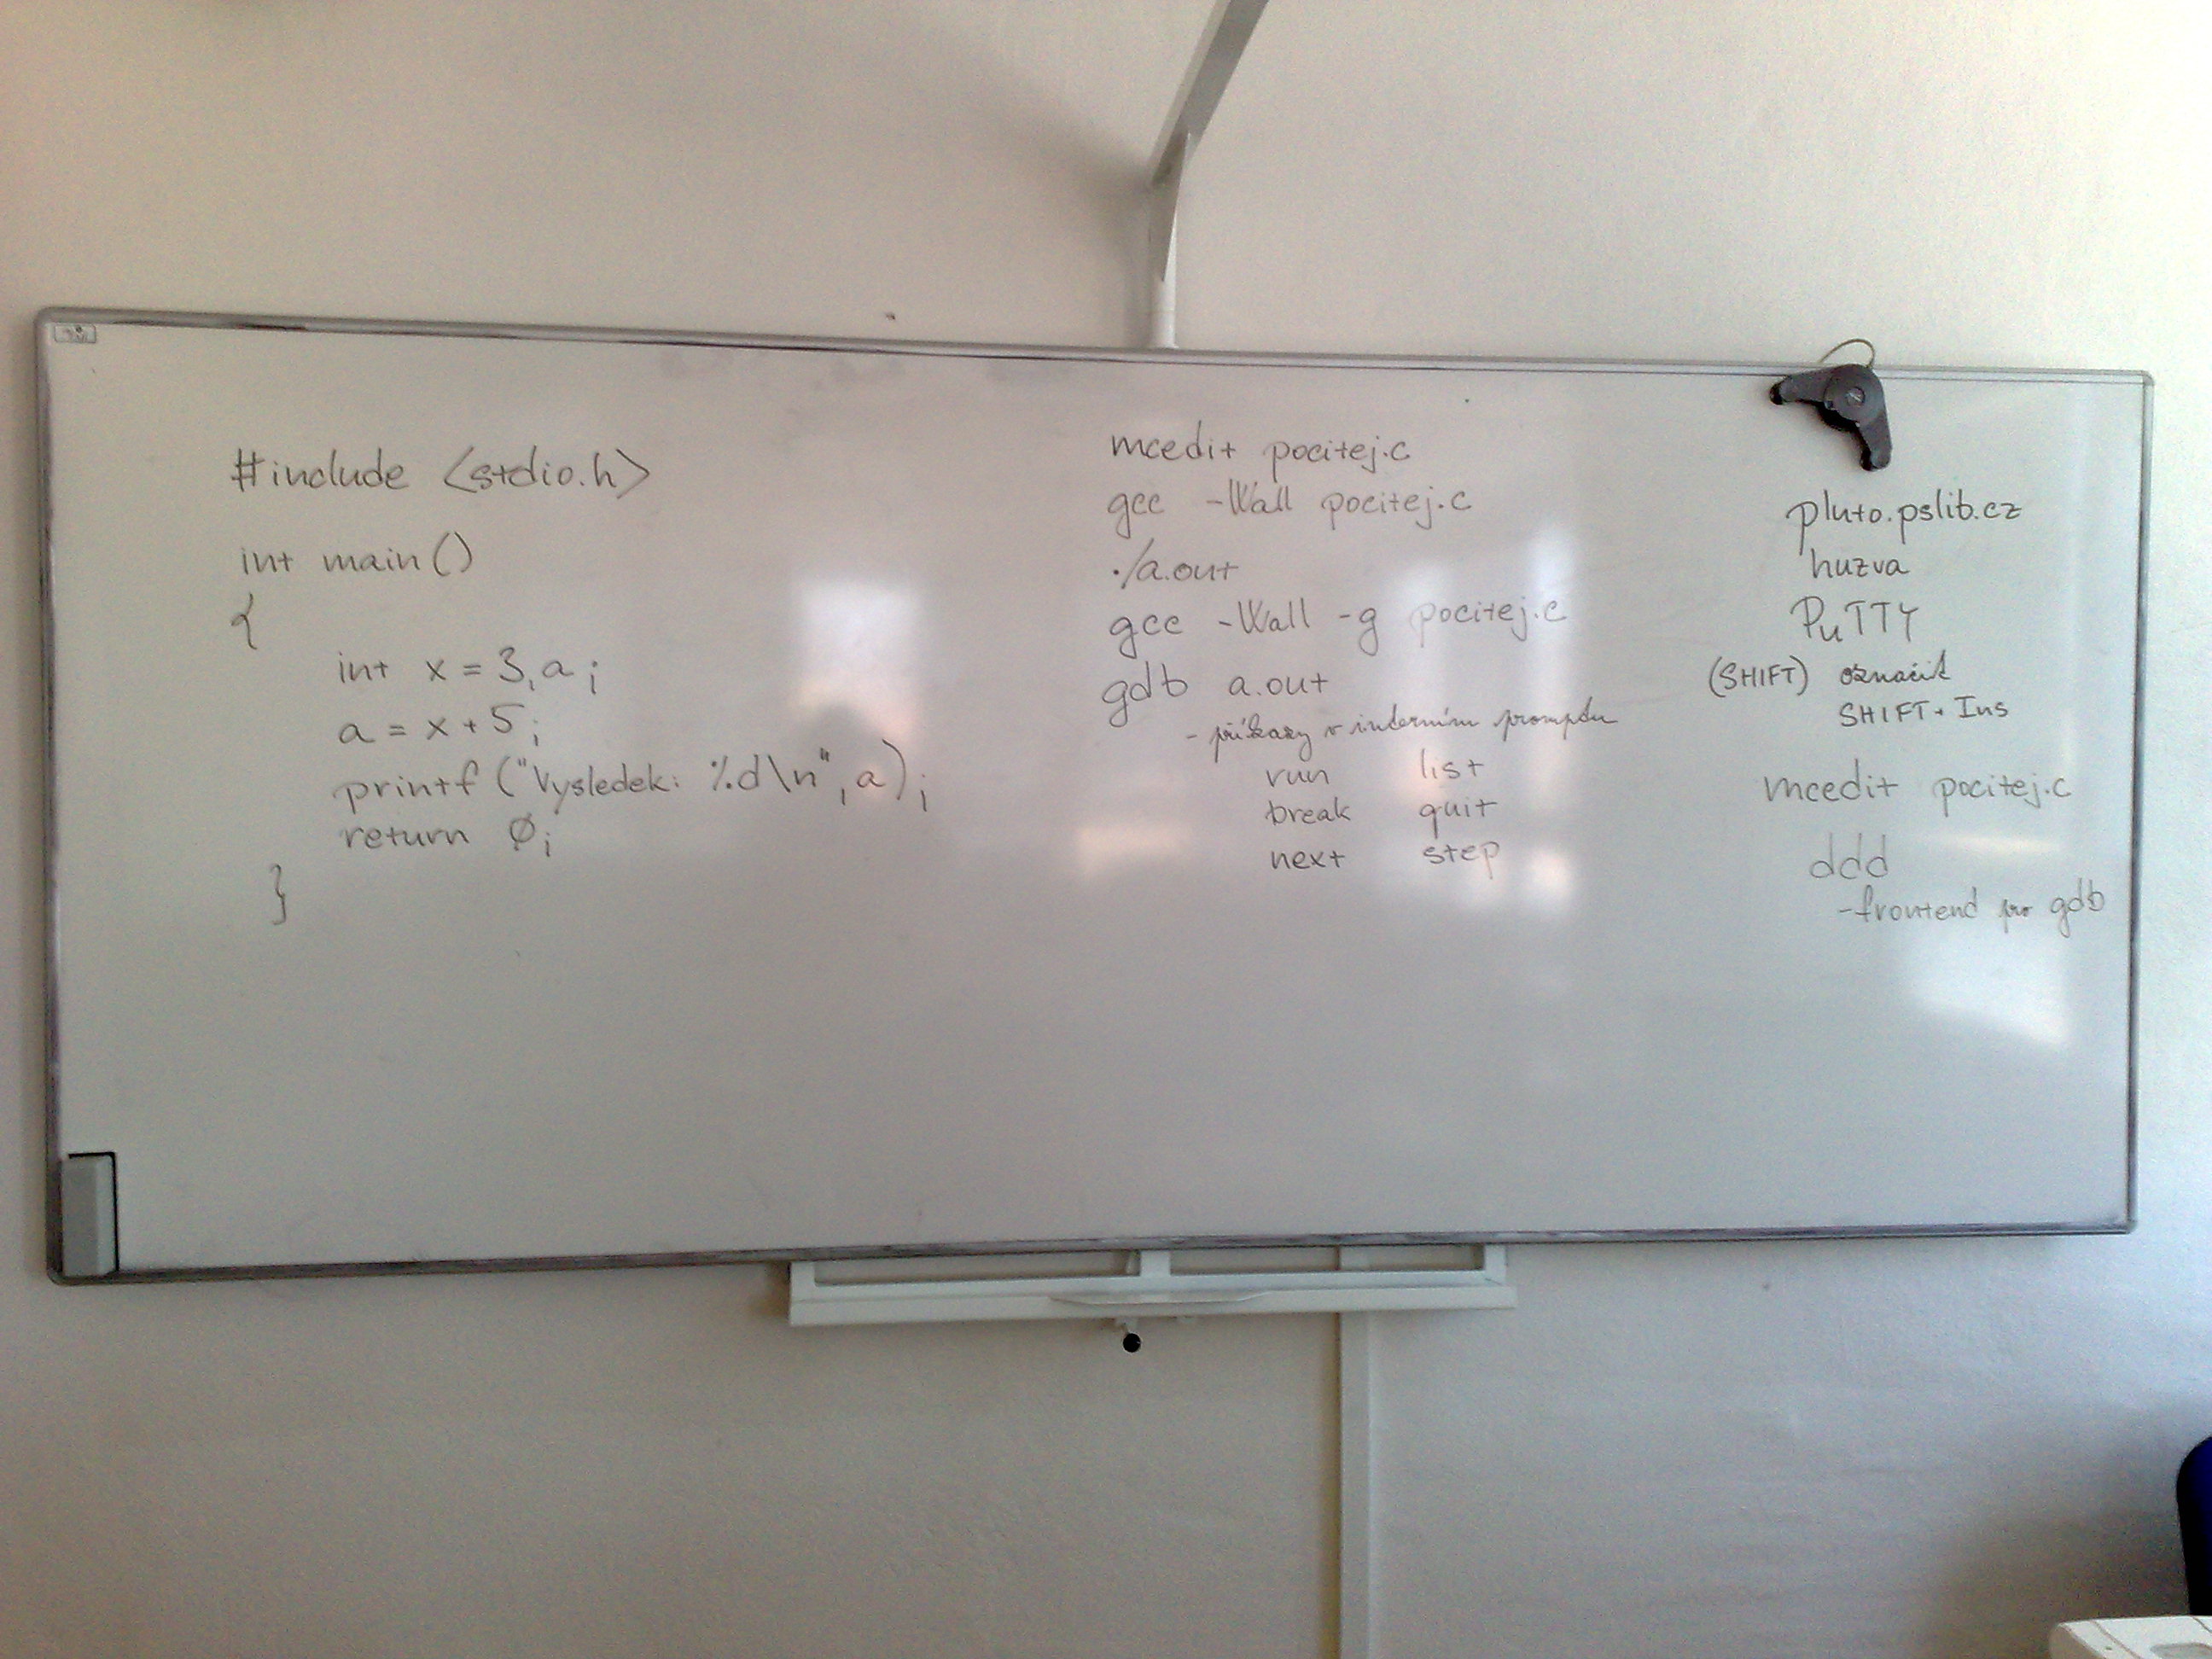 #include <stdio.h>
int main()
{
int x = 3, a;
a = x + 5;
printf("Vysledek: %d\n", a);
return 0;
}
mcedit pocitej.c
gcc -Wall pocitej.c
./a.out
gcc -Wall -g pocitej.c
gdb a.out
- příkazy v interním promptu
run list
break quit
next step
pluto.pslib.cz
huzva
PuTTY
(SHIFT) označit
SHIFT + Ins
mcedit pocitej.c
ddd
- frontend pro gdb